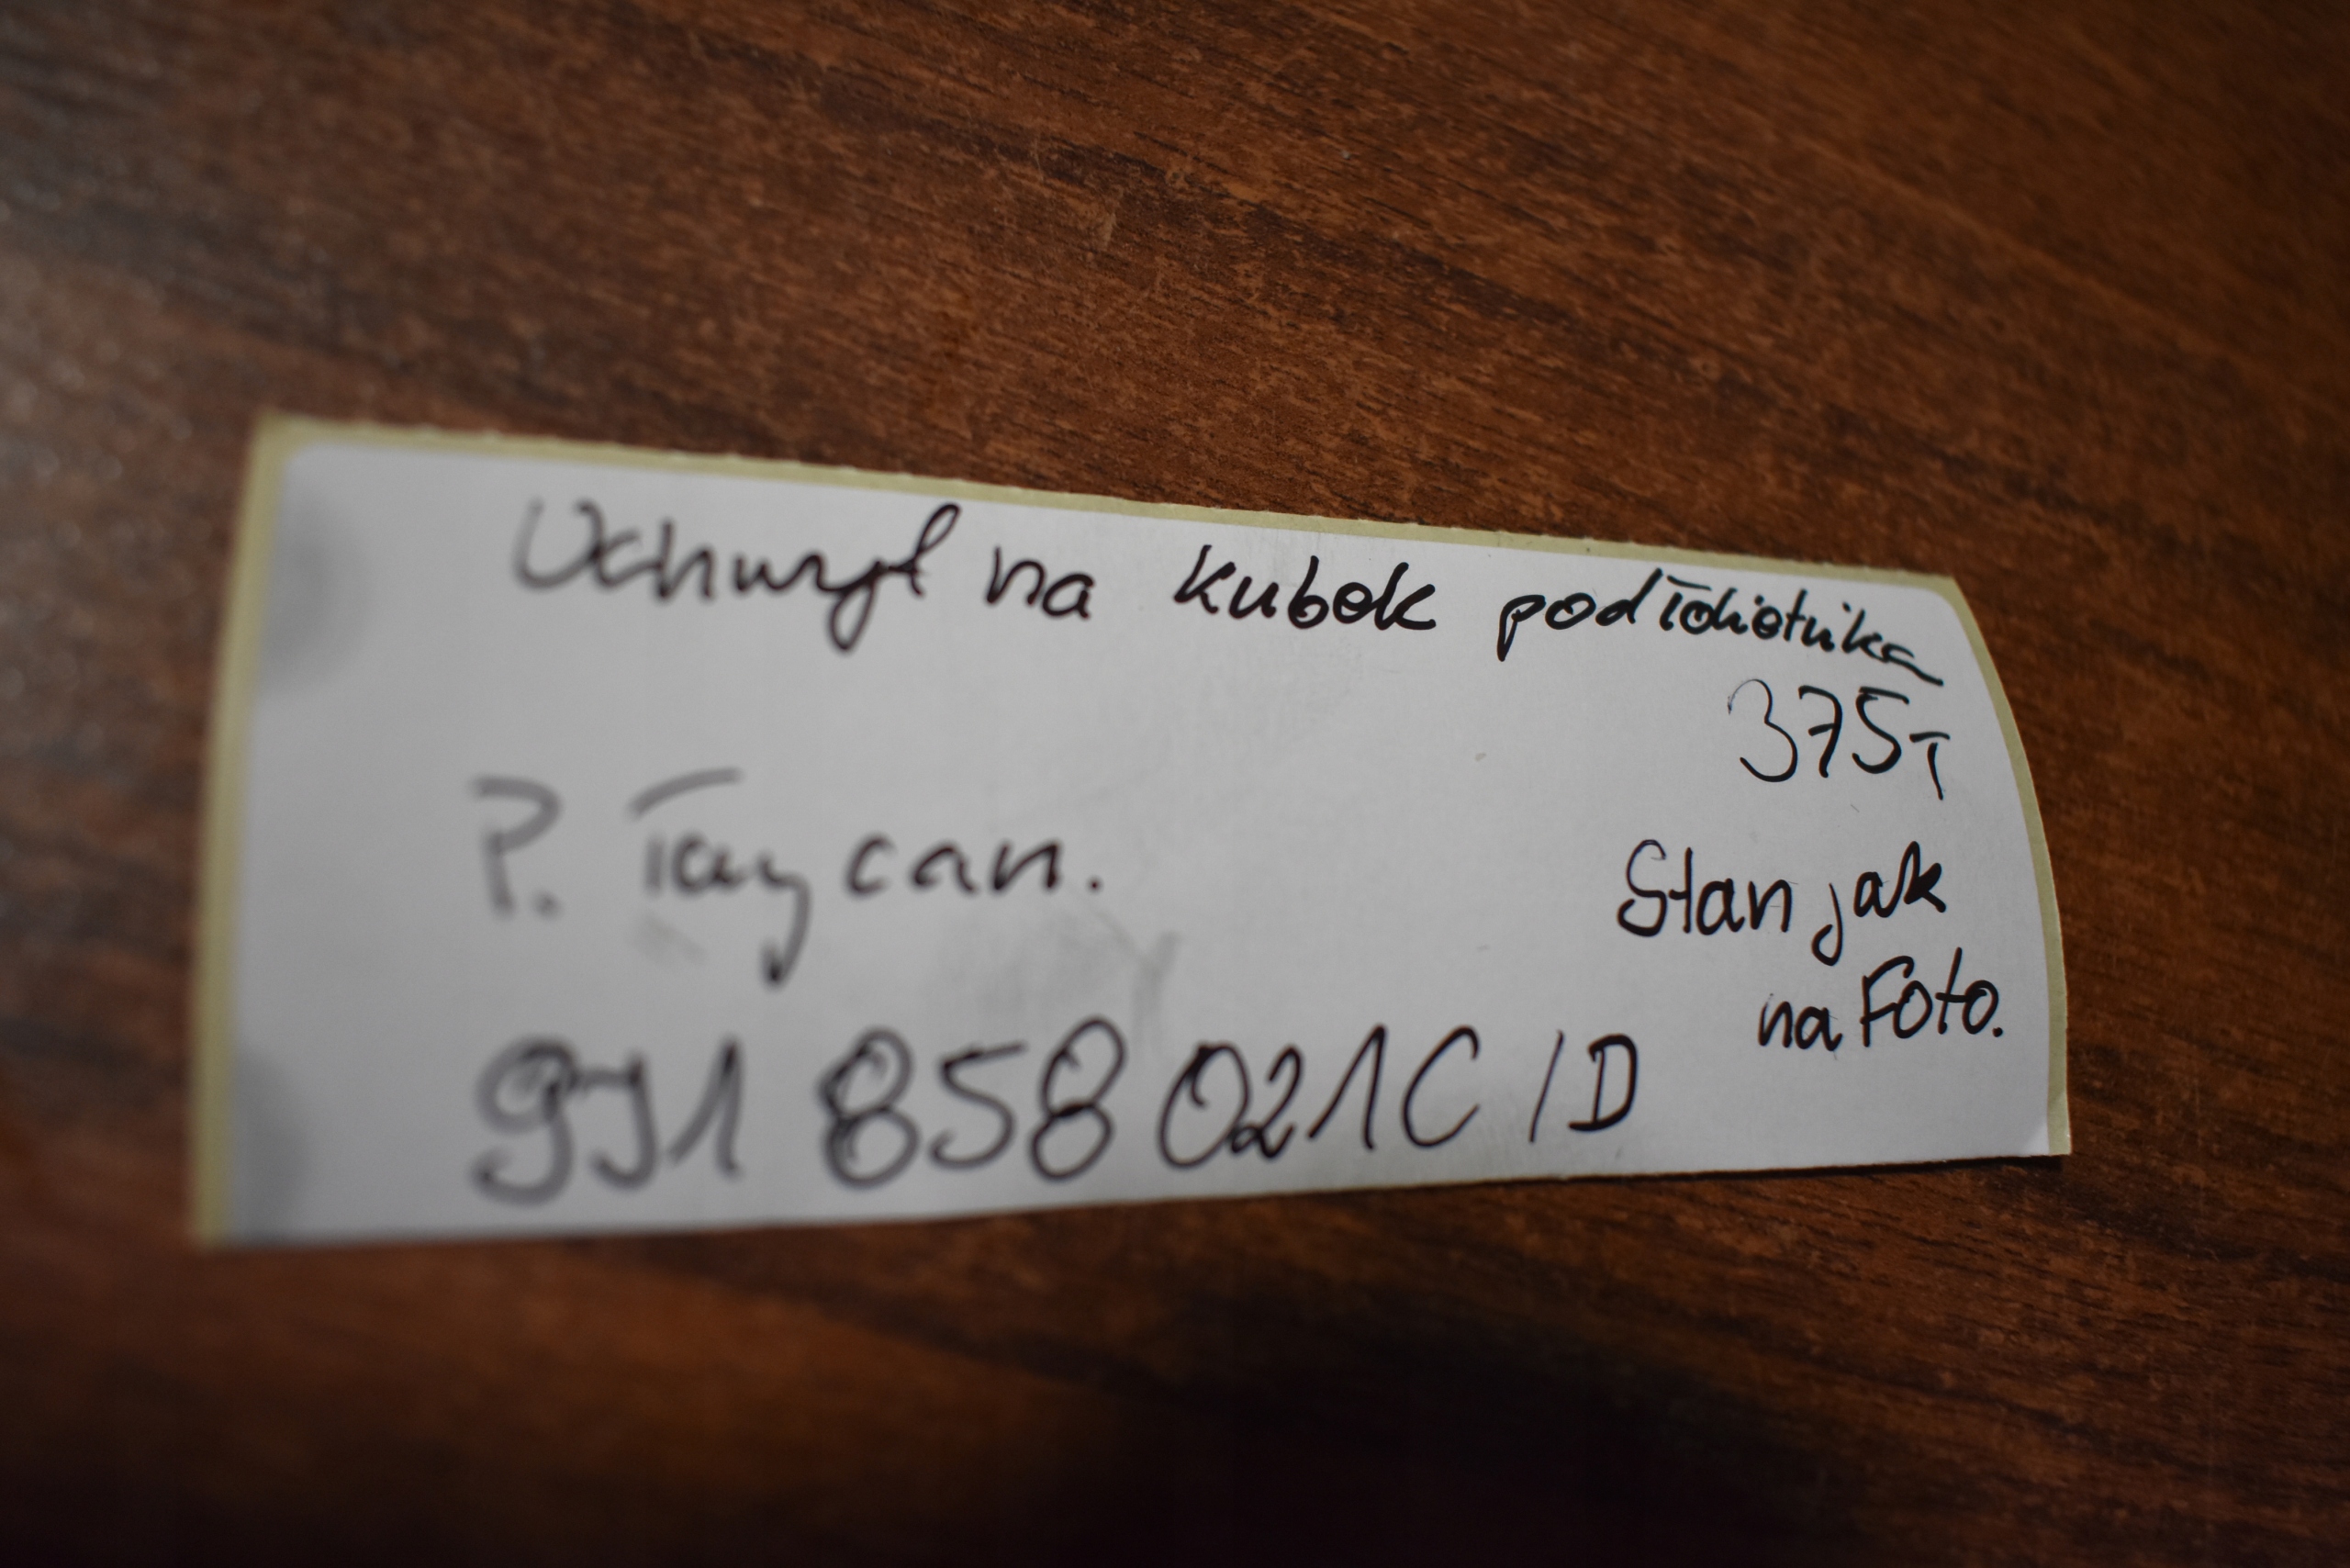 Uchwyt na kubek podłokietnika
375T
P. Taycan.
Stan jak
na Foto.
9J1 858 021C /D